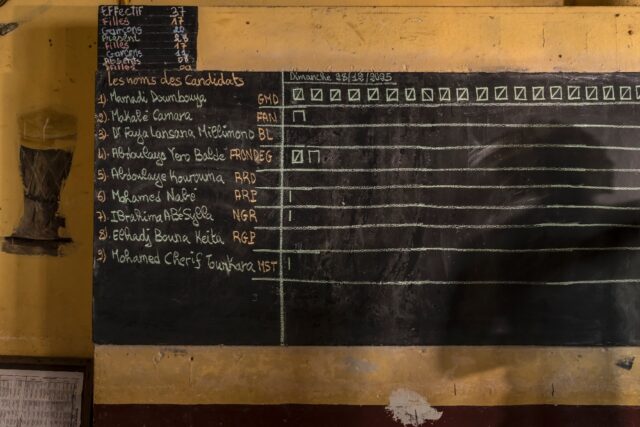 Effectif 37
Filles 17
Garçons 20
Présent 28
Filles 17
Garçons
Absents 08
Filles
Les noms des Candidats
Dimanche 28/12/2025
1) Mamadi Doumbouya GMD
2) Makalé Camara FAN
3) Dr Faya Lansana Millimono BL
4) Abdoulaye Yero Baldé FRONDEG
5) Abdoulaye Kourouma ARD
6) Mohamed Nabé ARP
7) IBrahima ABé Sylla NGR
8) Elhadj Bouna Keita RGP
9) Mohamed Cherif Tounkara MST